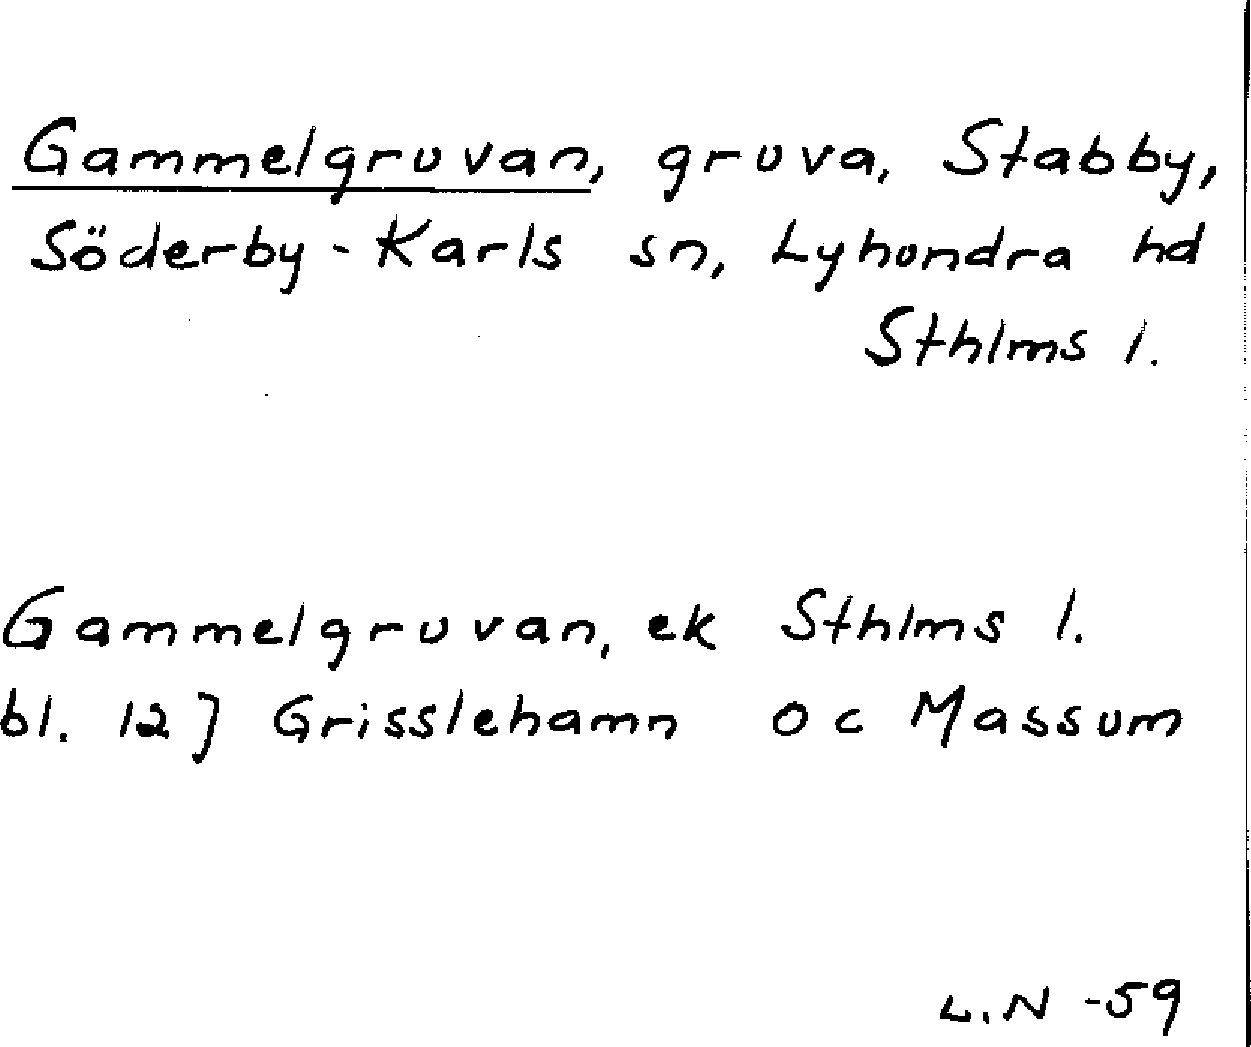 Gammelgruvan, gruva, Stabby,
Söderby-Karls sn, Lyhundra hd
Sthlms l.
Gammelgruvan, ek Sthlms l.
bl. 12] Grisslehamn o c Massum
L.N -59